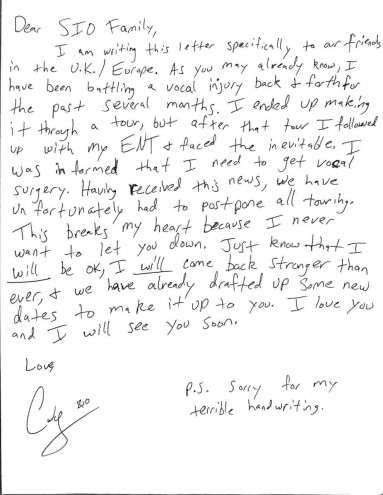 Dear SIO Family,
I am writing this letter specifically to our friends
in the U.K./Europe. As you may already know, I
have been battling a vocal injury back & forth for
the past several months. I ended up making
it through a tour, but after that tour I followed
up with my ENT & faced the inevitable, I
was informed that I need to get vocal
surgery. Having received this news, we have
unfortunately had to postpone all touring.
This breaks my heart because I never
want to let you down. Just know that I
will be ok, I will come back stronger than
ever, & we have already drafted up some new
dates to make it up to you. I love you
and I will see you soon.
Love,
P.S. Sorry for my
terrible handwriting.